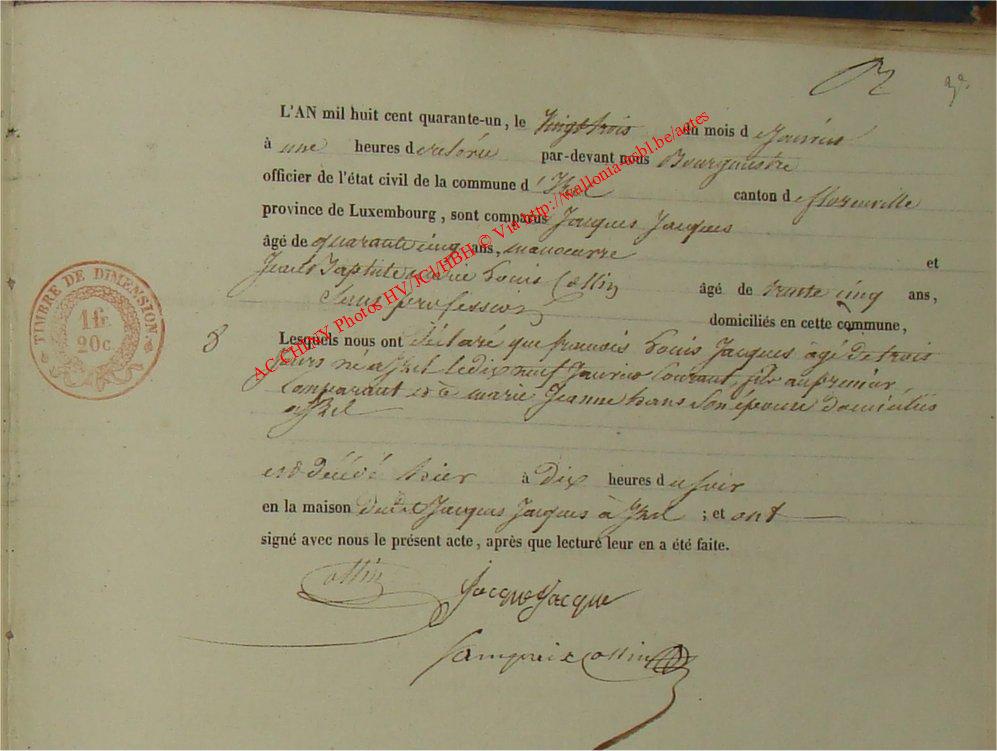 L'AN mil huit cent quarante-un, le vingt trois du mois de Janvier
à une heures de relevée par-devant nous Bourgmestre
officier de l'état civil de la commune d'Izel canton de florenville
province de Luxembourg, sont comparus Jacques Jacques
âgé de quarante cinq ans, manoeuvre et
Jean Baptiste marie Louis Collin âgé de trente cinq ans,
Sans profession domiciliés en cette commune,
3 Lesquels nous ont déclaré que francois Louis Jacques âgé de trois
jours né a Izel le dix neuf Janvier Courant, fils au premier
Comparant et à marie Jeanne hans Son épouse domiciliés
a Izel
est décédé hier à dix heures du soir
en la maison dudt Jacques Jacques à Izel ; et ont
signé avec nous le présent acte, après que lecture leur en a été faite.
Collin
Jacque Jacque
Collin
TIMBRE DE DIMENSION
1 fr.
20 c.
AC CHINY, Photos HV/JCl/HBH © Via http://wallonia-asbl.be/actes